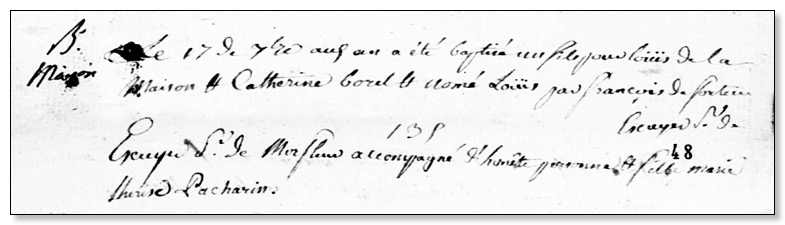 B.
Maison
Le 17 de 7bre aud an a été baptisé un fils pour Loüis de la
Maison & Catherine borel & nomé Loüis par françois de
Escuyer Sr de
135
Escuyer Sr. de accompagné d'honéte personne & fille marie
48
therese Pacharin.